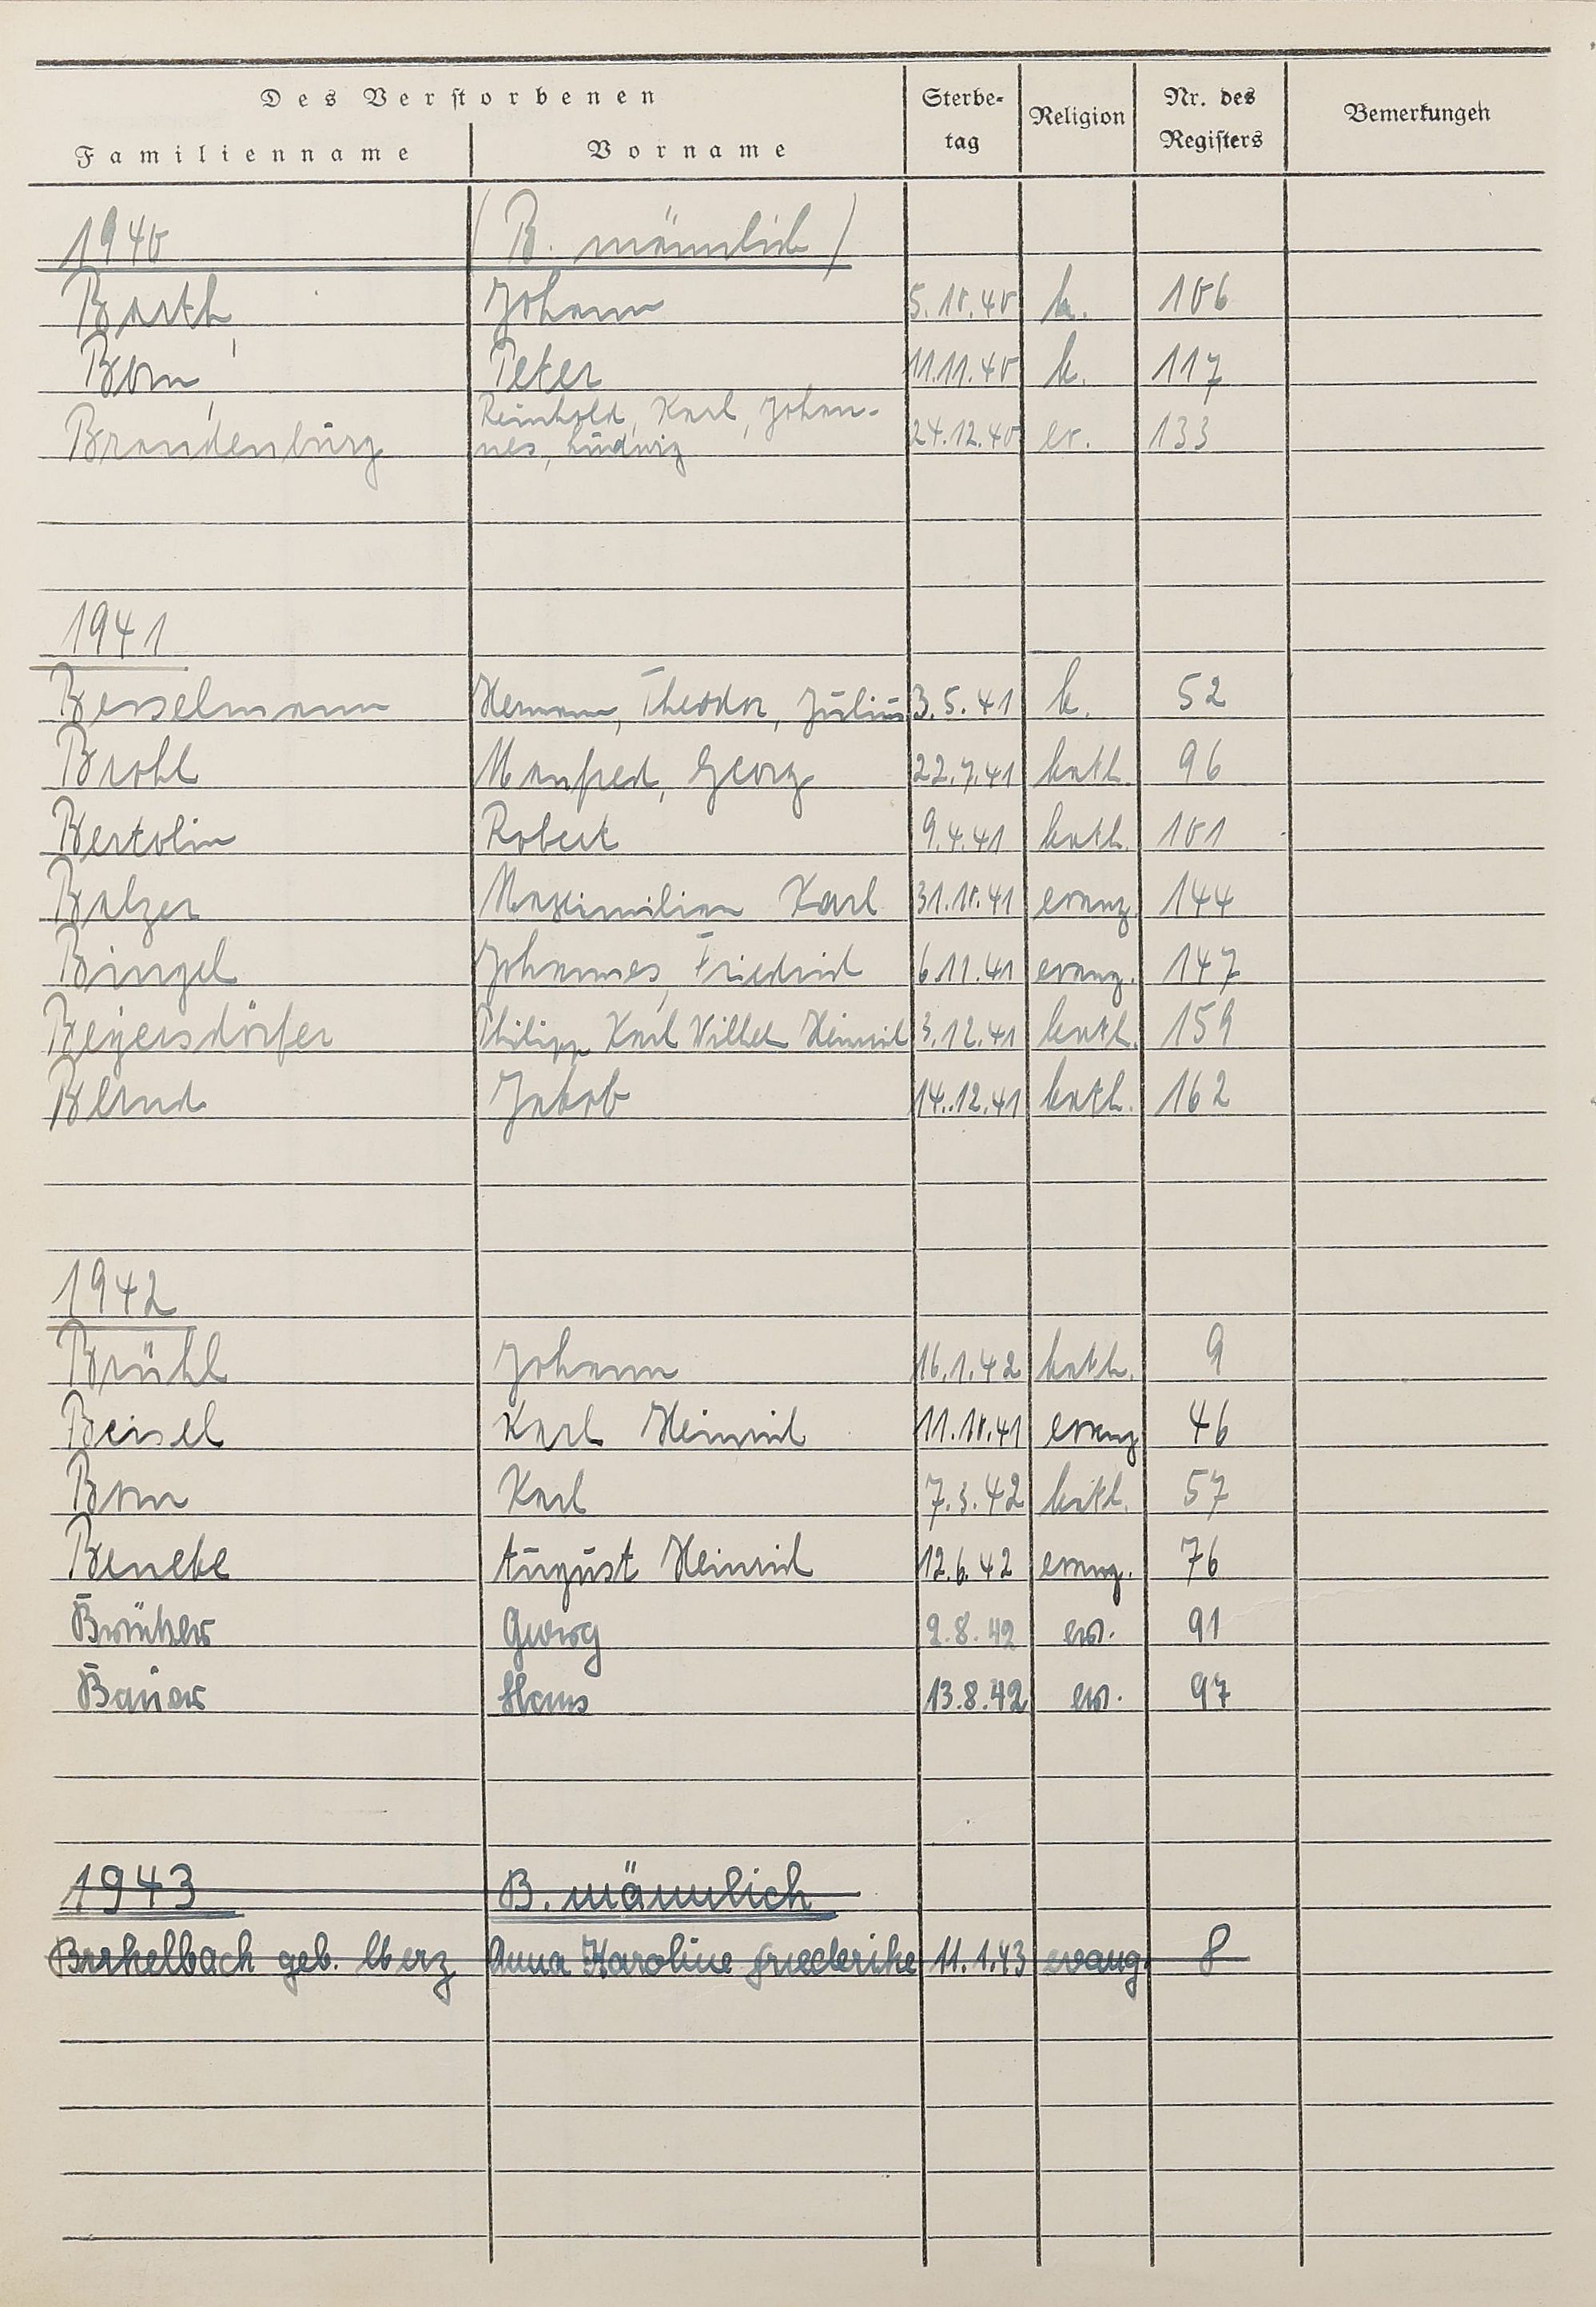 Des Verstorbenen
Familienname Vorname Sterbe-tag Religion Nr. des Registers Bemerkungen
1940 (B. männlich)
Barth, Johann 5.10.40 k. 106
Born, Peter 11.11.40 k. 117
Reinhold, Karl, Johan-
Brandenburg nes, Ludwig 24.12.40 ev. 133
1941
Besselmann Hermann, Theodor, Julius 3.5.41 k. 52
Brohl Manfred, Georg 22.7.41 kath. 96
Bertolin Robert 9.4.41 kath. 101
Balzer Maximilian Karl 31.10.41 evang. 144
Bingel Johannes, Friedrich 6.11.41 evang. 147
Beyersdörfer Philipp Karl Wilhelm Heinrich 3.12.41 kath. 159
Bernd Jakob 14.12.41 kath. 162
1942
Brühl Johann 16.1.42 kath. 9
Beisel Karl Heinrich 11.10.41 evang 46
Born Karl 7.3.42 kath. 57
Beneke August Heinrich 12.6.42 evang. 76
Georg 2.8.42 ev. 91
Bauer Hans 13.8.42 ev. 97
1943 B. männlich
geb. Anna Karoline Friederike 11.1.43 evang. 8